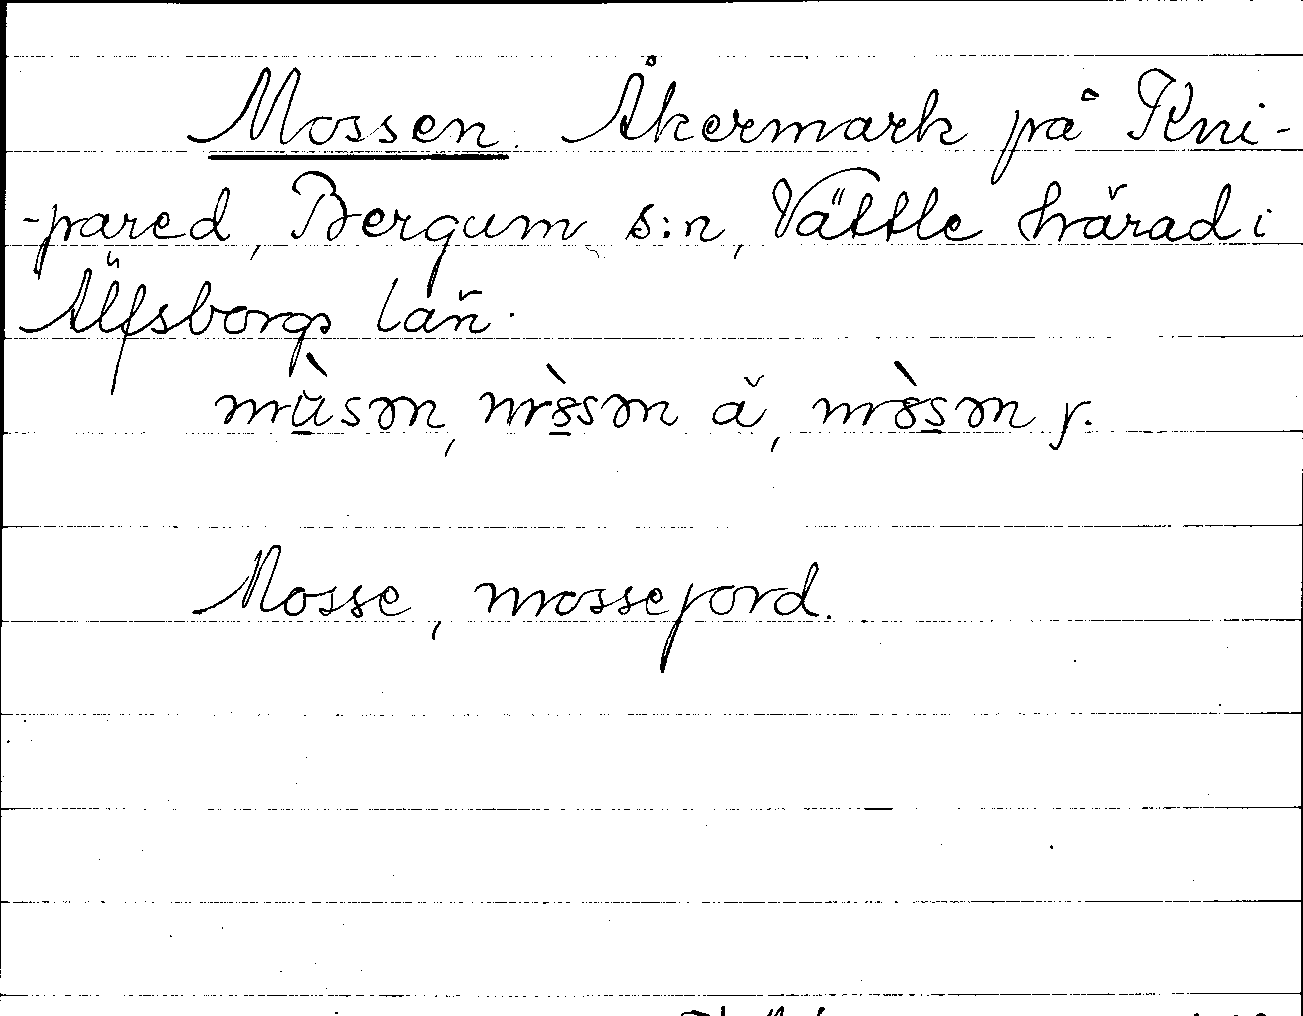 Mossen. Åkermark på Kni-
-pared, Bergum s:n, Vättle härad i
Älfsborgs län.
Mosse, mossejord.